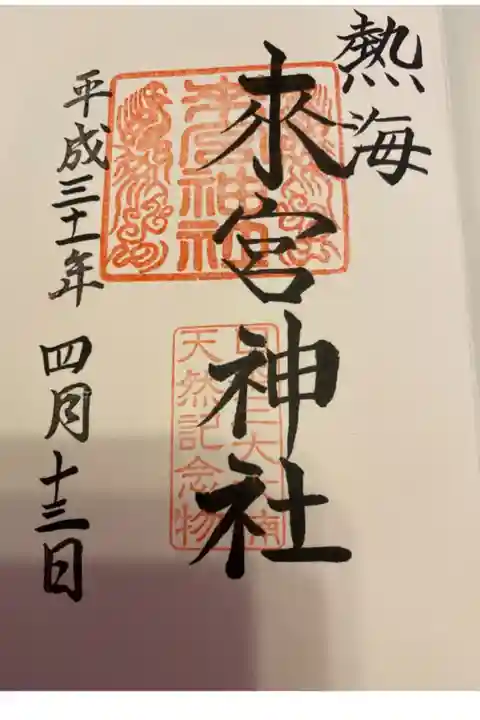 熱海
來宮神社
來宮神社
天然記念物
平成三十一年 四月十三日